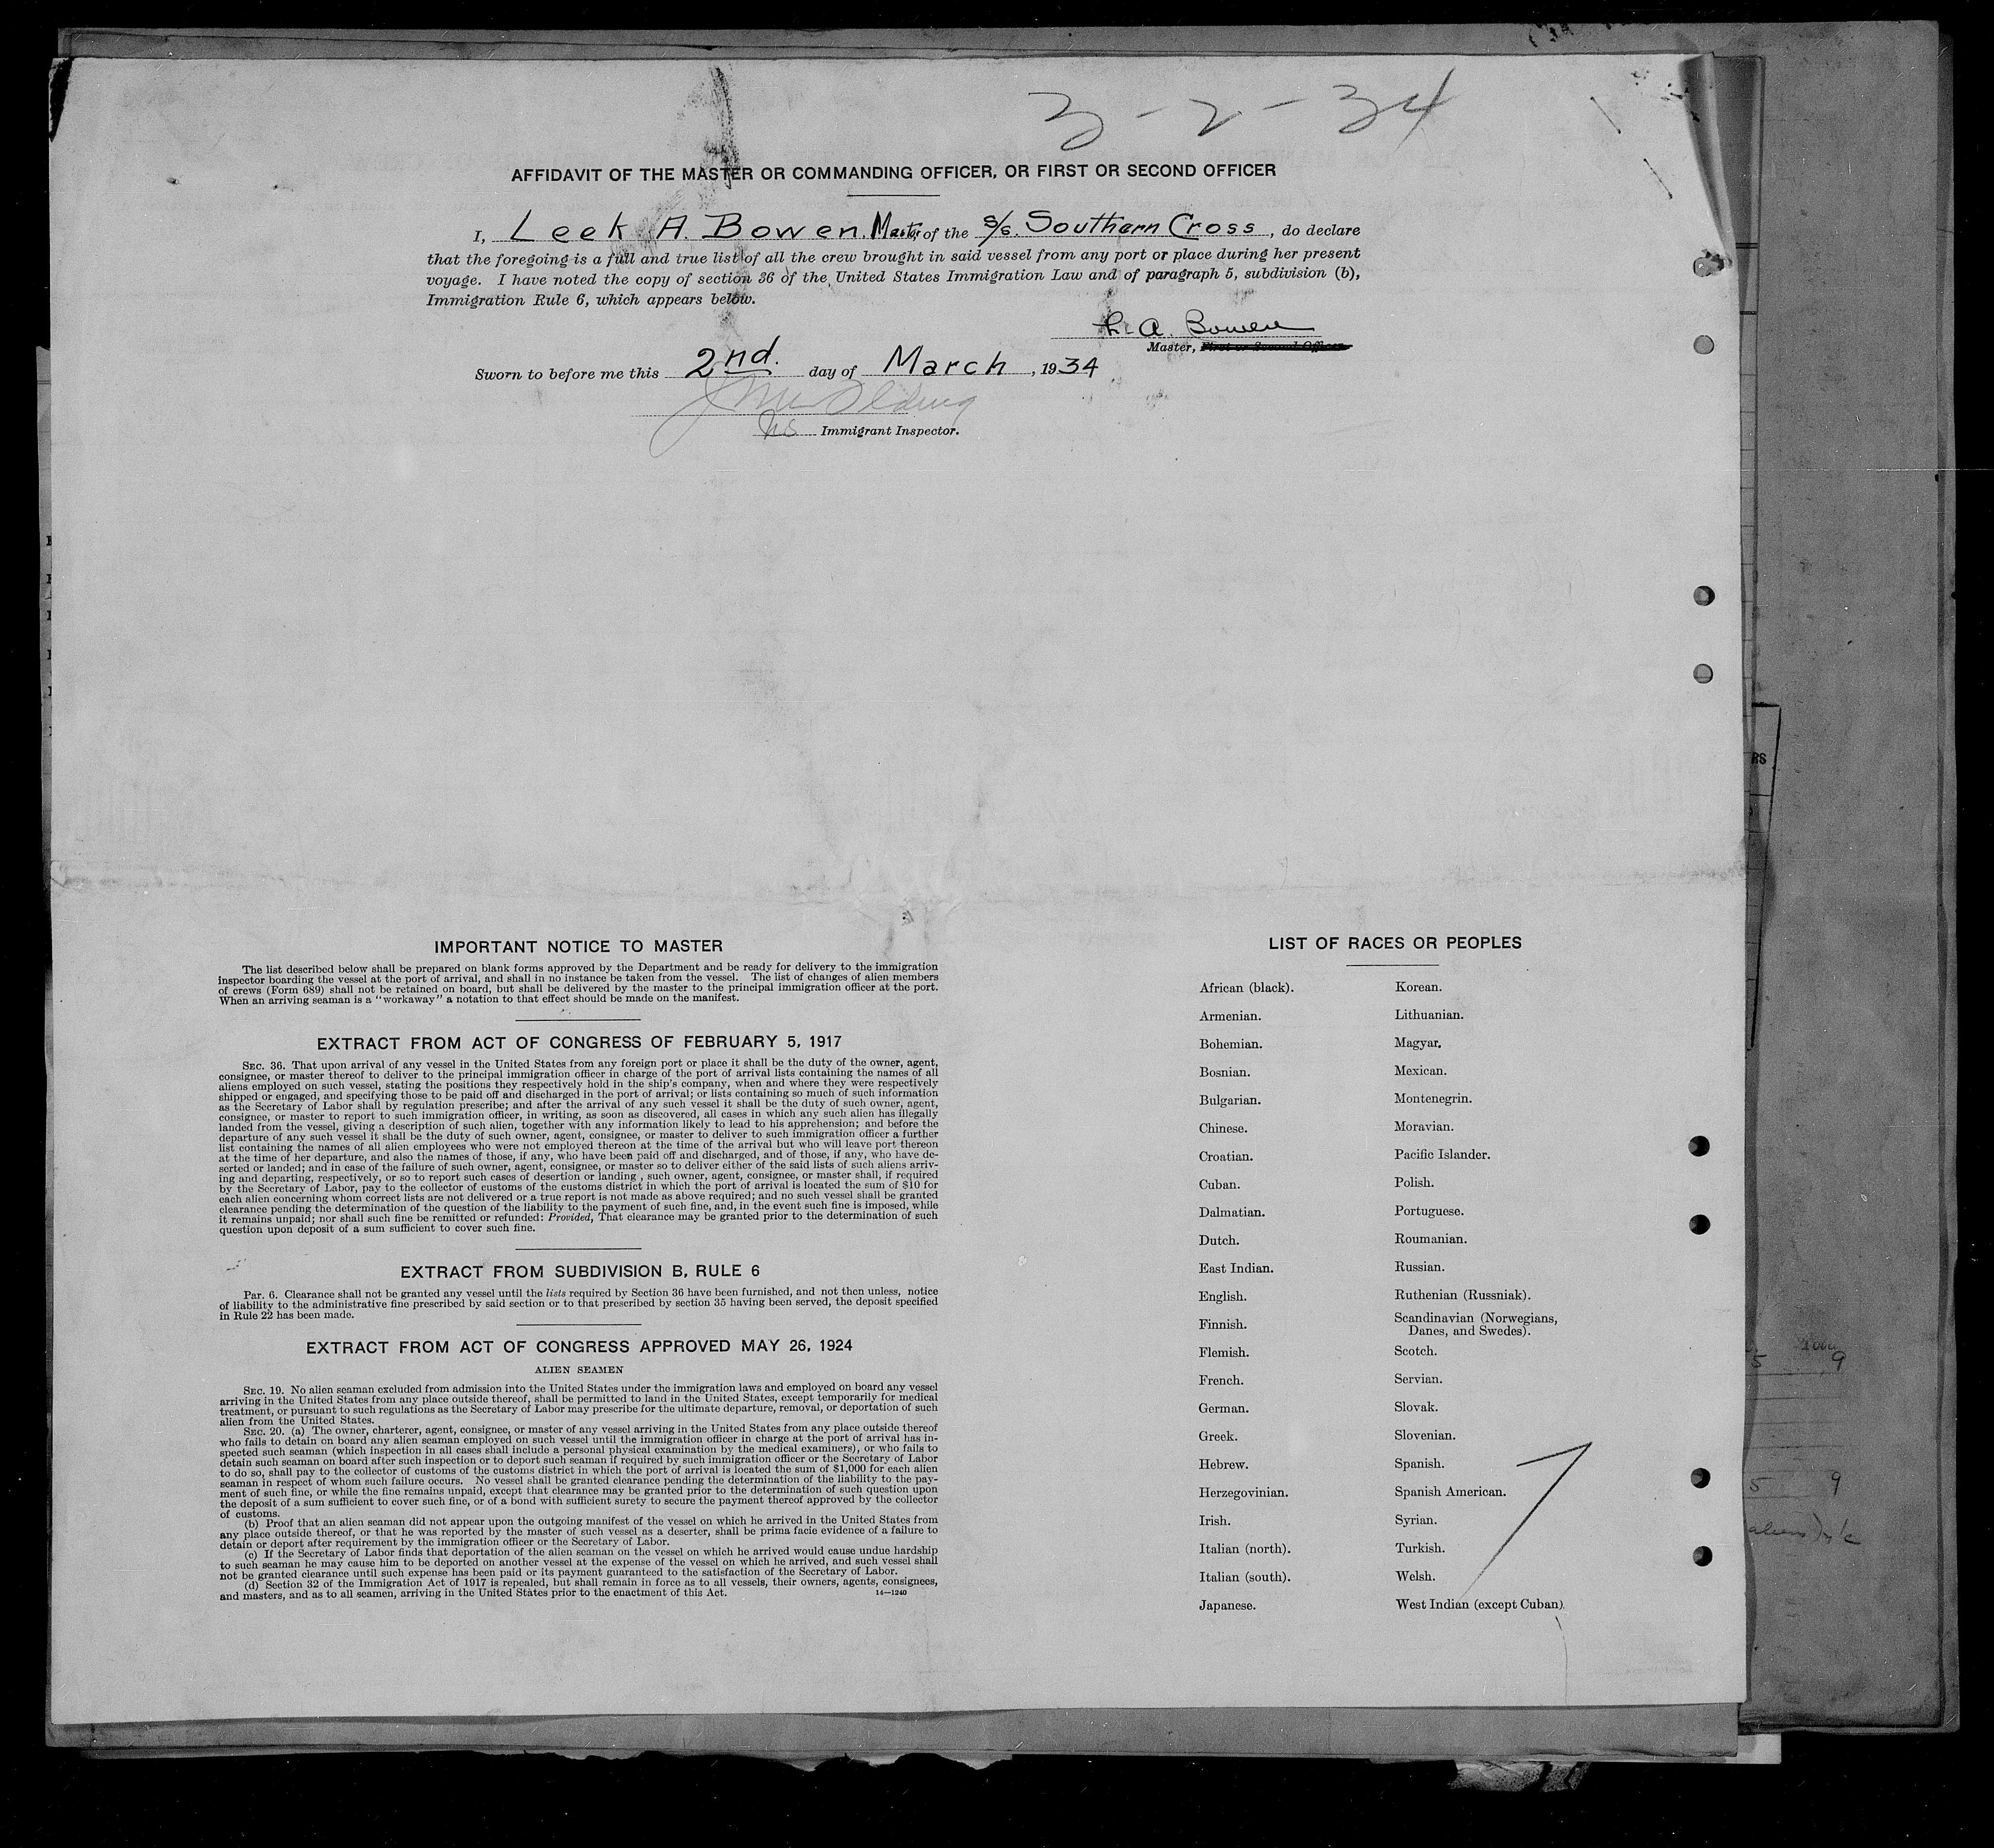 3-2-34
AFFIDAVIT OF THE MASTER OR COMMANDING OFFICER, OR FIRST OR SECOND OFFICER
I, Leek A. Bowen. Master of the S/S. Southern Cross, do declare
that the foregoing is a full and true list of all the crew brought in said vessel from any port or place during her present
voyage. I have noted the copy of section 36 of the United States Immigration Law and of paragraph 5, subdivision (b),
Immigration Rule 6, which appears below.
L. A. Bowen
Master, First or Second Officer.
Sworn to before me this 2nd. day of March, 1934
Immigrant Inspector.
IMPORTANT NOTICE TO MASTER
The list described below shall be prepared on blank forms approved by the Department and be ready for delivery to the immigration
inspector boarding the vessel at the port of arrival, and shall in no instance be taken from the vessel. The list of changes of alien members
of crews (Form 689) shall not be retained on board, but shall be delivered by the master to the principal immigration officer at the port.
When an arriving seaman is a "workaway" a notation to that effect should be made on the manifest.
EXTRACT FROM ACT OF CONGRESS OF FEBRUARY 5, 1917
SEC. 36. That upon arrival of any vessel in the United States from any foreign port or place it shall be the duty of the owner, agent,
consignee, or master thereof to deliver to the principal immigration officer in charge of the port of arrival lists containing the names of all
aliens employed on such vessel, stating the positions they respectively hold in the ship's company, when and where they were respectively
shipped or engaged, and specifying those to be paid off and discharged in the port of arrival; or lists containing so much of such information
as the Secretary of Labor shall by regulation prescribe; and after the arrival of any such vessel it shall be the duty of such owner, agent,
consignee, or master to report to such immigration officer, in writing, as soon as discovered, all cases in which any such alien has illegally
landed from the vessel, giving a description of such alien, together with any information likely to lead to his apprehension; and before the
departure of any such vessel it shall be the duty of such owner, agent, consignee, or master to deliver to such immigration officer a further
list containing the names of all alien employees who were not employed thereon at the time of the arrival but who will leave port thereon
at the time of her departure, and also the names of those, if any, who have been paid off and discharged, and of those, if any, who have de-
serted or landed; and in case of the failure of such owner, agent, consignee, or master so to deliver either of the said lists of such aliens arriv-
ing and departing, respectively, or so to report such cases of desertion or landing , such owner, agent, consignee, or master shall, if required
by the Secretary of Labor, pay to the collector of customs of the customs district in which the port of arrival is located the sum of $10 for
each alien concerning whom correct lists are not delivered or a true report is not made as above required; and no such vessel shall be granted
clearance pending the determination of the question of the liability to the payment of such fine, and, in the event such fine is imposed, while
it remains unpaid; nor shall such fine be remitted or refunded: Provided, That clearance may be granted prior to the determination of such
question upon deposit of a sum sufficient to cover such fine.
EXTRACT FROM SUBDIVISION B, RULE 6
Par. 6. Clearance shall not be granted any vessel until the lists required by Section 36 have been furnished, and not then unless, notice
of liability to the administrative fine prescribed by said section or to that prescribed by section 35 having been served, the deposit specified
in Rule 22 has been made.
EXTRACT FROM ACT OF CONGRESS APPROVED MAY 26, 1924
ALIEN SEAMEN
SEC. 19. No alien seaman excluded from admission into the United States under the immigration laws and employed on board any vessel
arriving in the United States from any place outside thereof, shall be permitted to land in the United States, except temporarily for medical
treatment, or pursuant to such regulations as the Secretary of Labor may prescribe for the ultimate departure, removal, or deportation of such
alien from the United States.
SEC. 20. (a) The owner, charterer, agent, consignee, or master of any vessel arriving in the United States from any place outside thereof
who fails to detain on board any alien seaman employed on such vessel until the immigration officer in charge at the port of arrival has in-
spected such seaman (which inspection in all cases shall include a personal physical examination by the medical examiners), or who fails to
detain such seaman on board after such inspection or to deport such seaman if required by such immigration officer or the Secretary of Labor
to do so, shall pay to the collector of customs of the customs district in which the port of arrival is located the sum of $1,000 for each alien
seaman in respect of whom such failure occurs. No vessel shall be granted clearance pending the determination of the liability to the pay-
ment of such fine, or while the fine remains unpaid, except that clearance may be granted prior to the determination of such question upon
the deposit of a sum sufficient to cover such fine, or of a bond with sufficient surety to secure the payment thereof approved by the collector
of customs.
(b) Proof that an alien seaman did not appear upon the outgoing manifest of the vessel on which he arrived in the United States from
any place outside thereof, or that he was reported by the master of such vessel as a deserter, shall be prima facie evidence of a failure to
detain or deport after requirement by the immigration officer or the Secretary of Labor.
(c) If the Secretary of Labor finds that deportation of the alien seaman on the vessel on which he arrived would cause undue hardship
to such seaman he may cause him to be deported on another vessel at the expense of the vessel on which he arrived, and such vessel shall
not be granted clearance until such expense has been paid or its payment guaranteed to the satisfaction of the Secretary of Labor.
(d) Section 32 of the Immigration Act of 1917 is repealed, but shall remain in force as to all vessels, their owners, agents, consignees,
and masters, and as to all seamen, arriving in the United States prior to the enactment of this Act. 14—1240
LIST OF RACES OR PEOPLES
African (black). Korean.
Armenian. Lithuanian.
Bohemian. Magyar.
Bosnian. Mexican.
Bulgarian. Montenegrin.
Chinese. Moravian.
Croatian. Pacific Islander.
Cuban. Polish.
Dalmatian. Portuguese.
Dutch. Roumanian.
East Indian. Russian.
English. Ruthenian (Russniak).
Finnish. Scandinavian (Norwegians,
Danes, and Swedes).
Flemish. Scotch.
French. Servian.
German. Slovak.
Greek. Slovenian.
Hebrew. Spanish.
Herzegovinian. Spanish American.
Irish. Syrian.
Italian (north). Turkish.
Italian (south). Welsh.
Japanese. West Indian (except Cuban).
RS
5 9
5 9